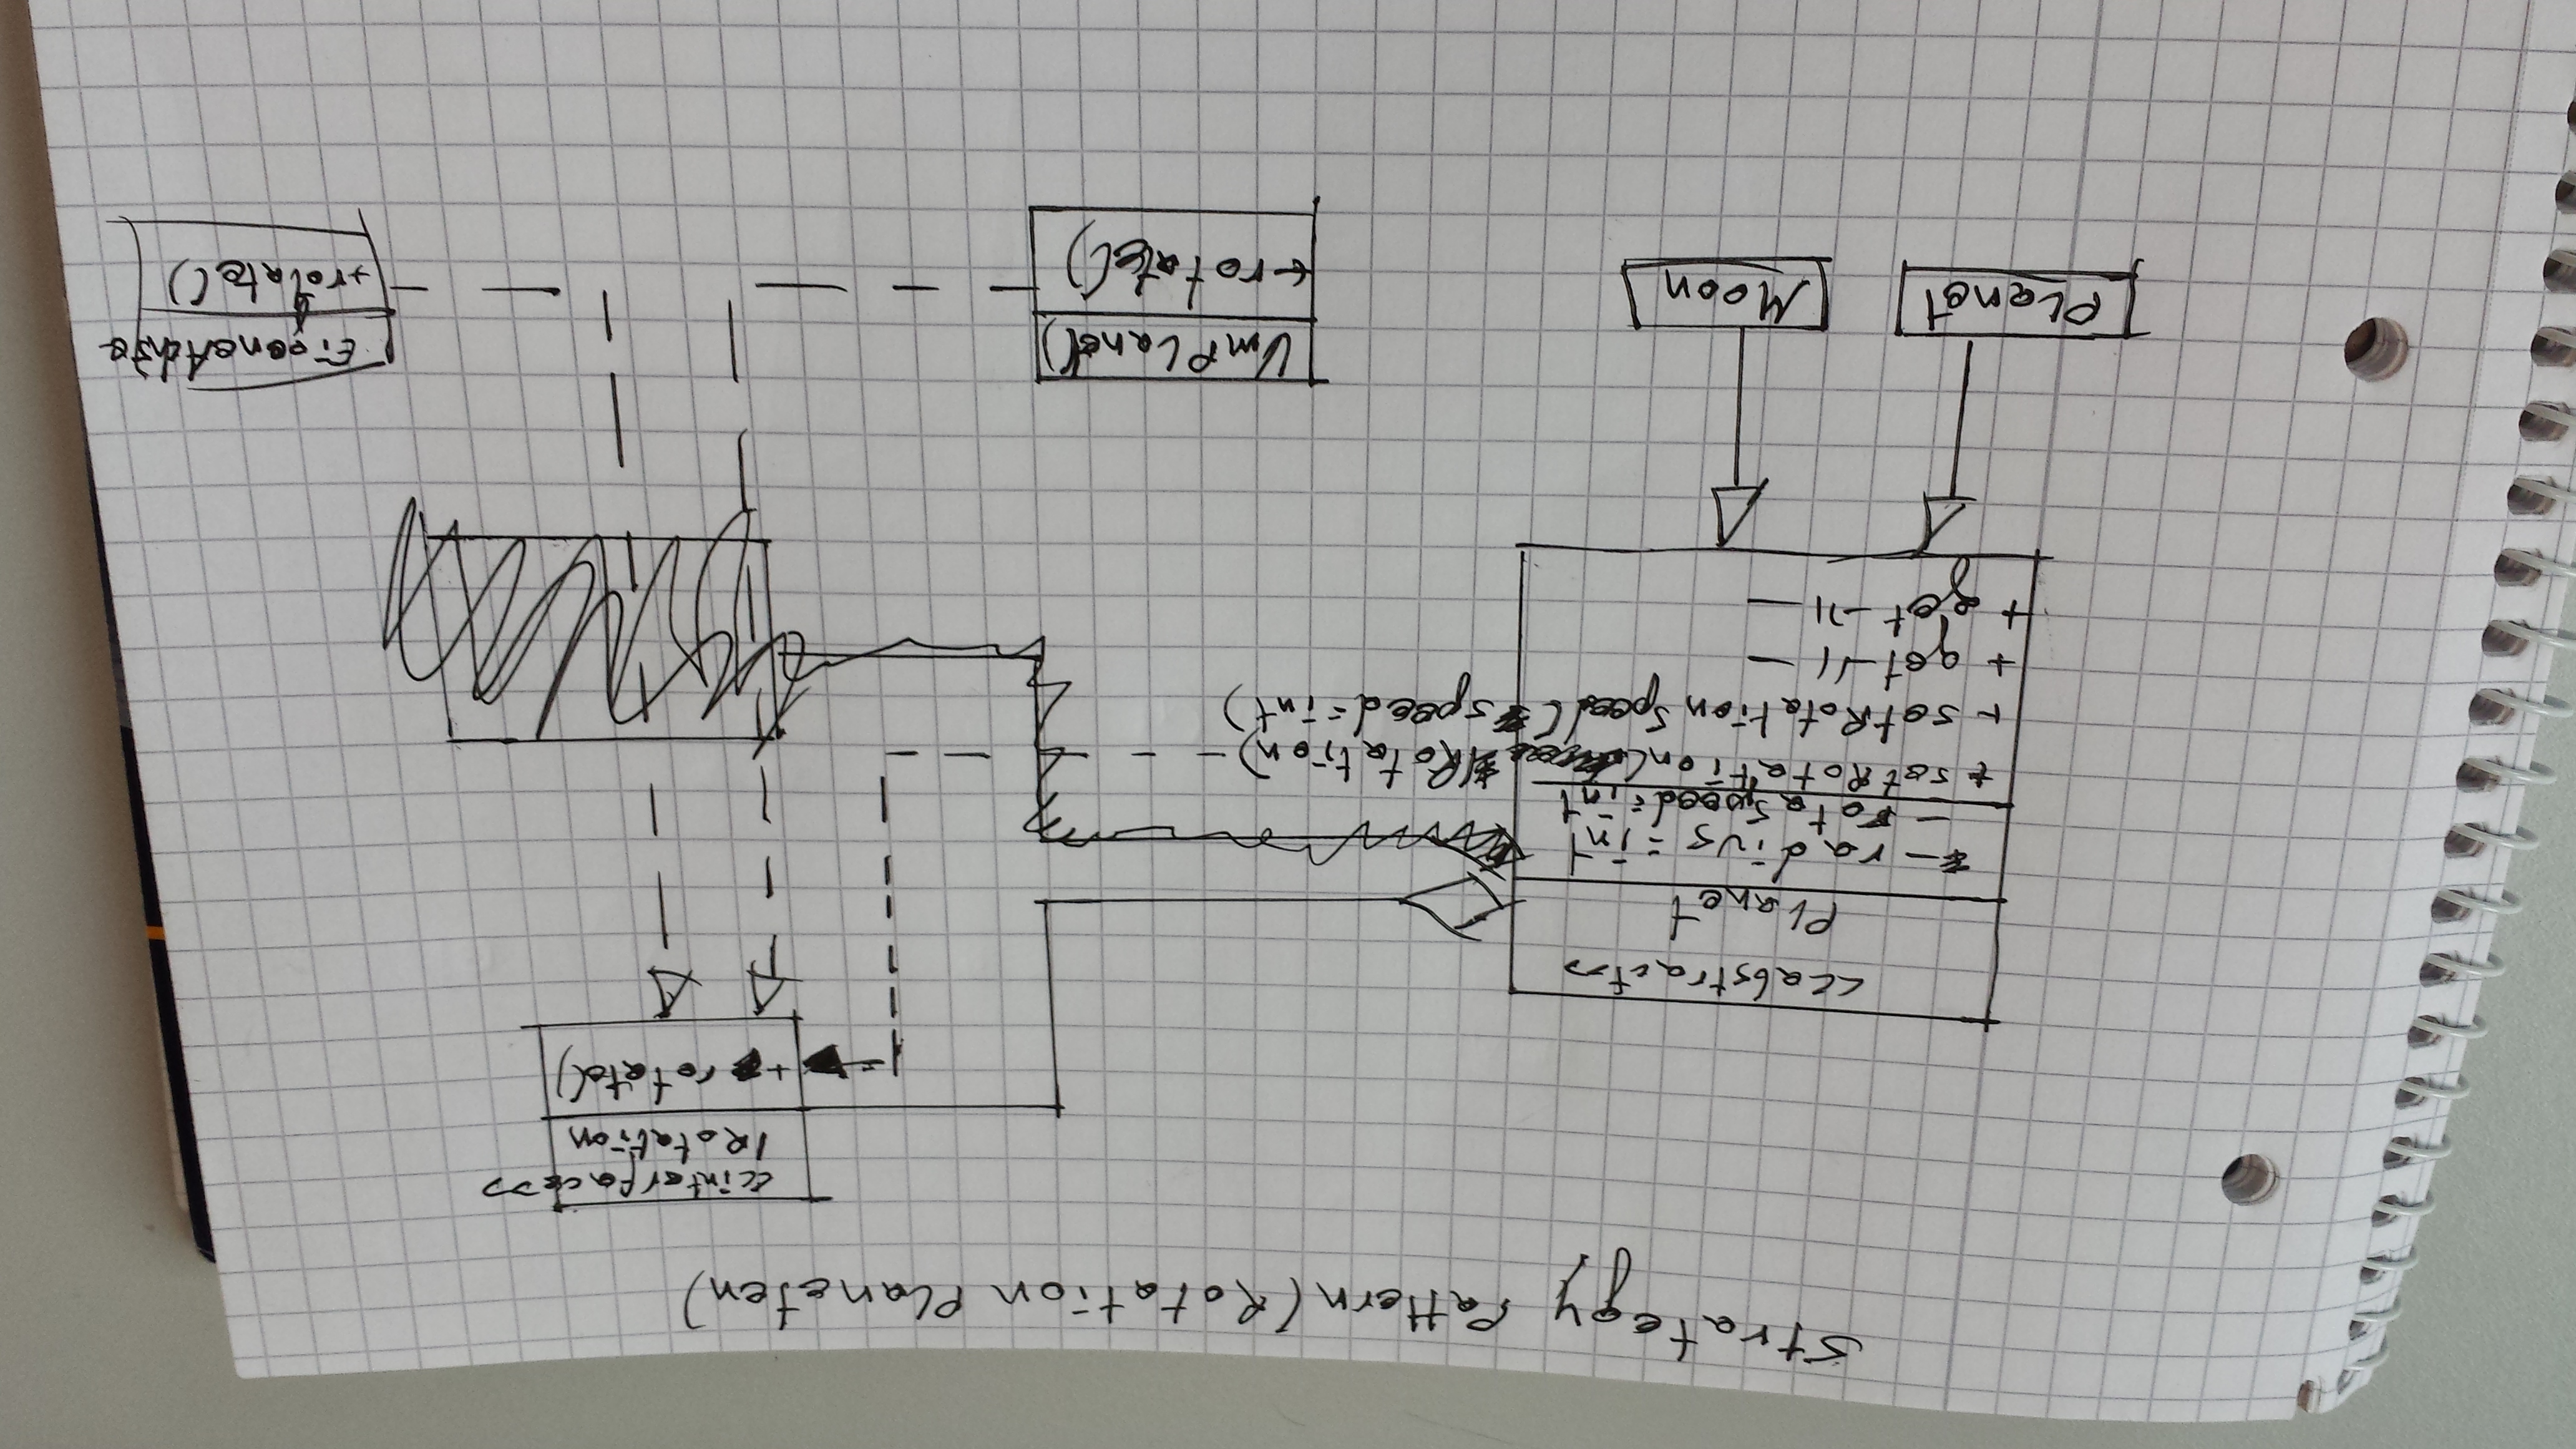 Strategy Pattern (Rotation Planeten)
<<interface>>
IRotation
+ rotate()
<<abstract>>
Planet
- radius : int
- rotaSpeed : int
+ setRotation( IRotation)
+ setRotationSpeed( speed : int)
+ get -11-
+ get -11-
Planet
Moon
UmPlanet()
+rotate()
EigeneAchse
+rotate()